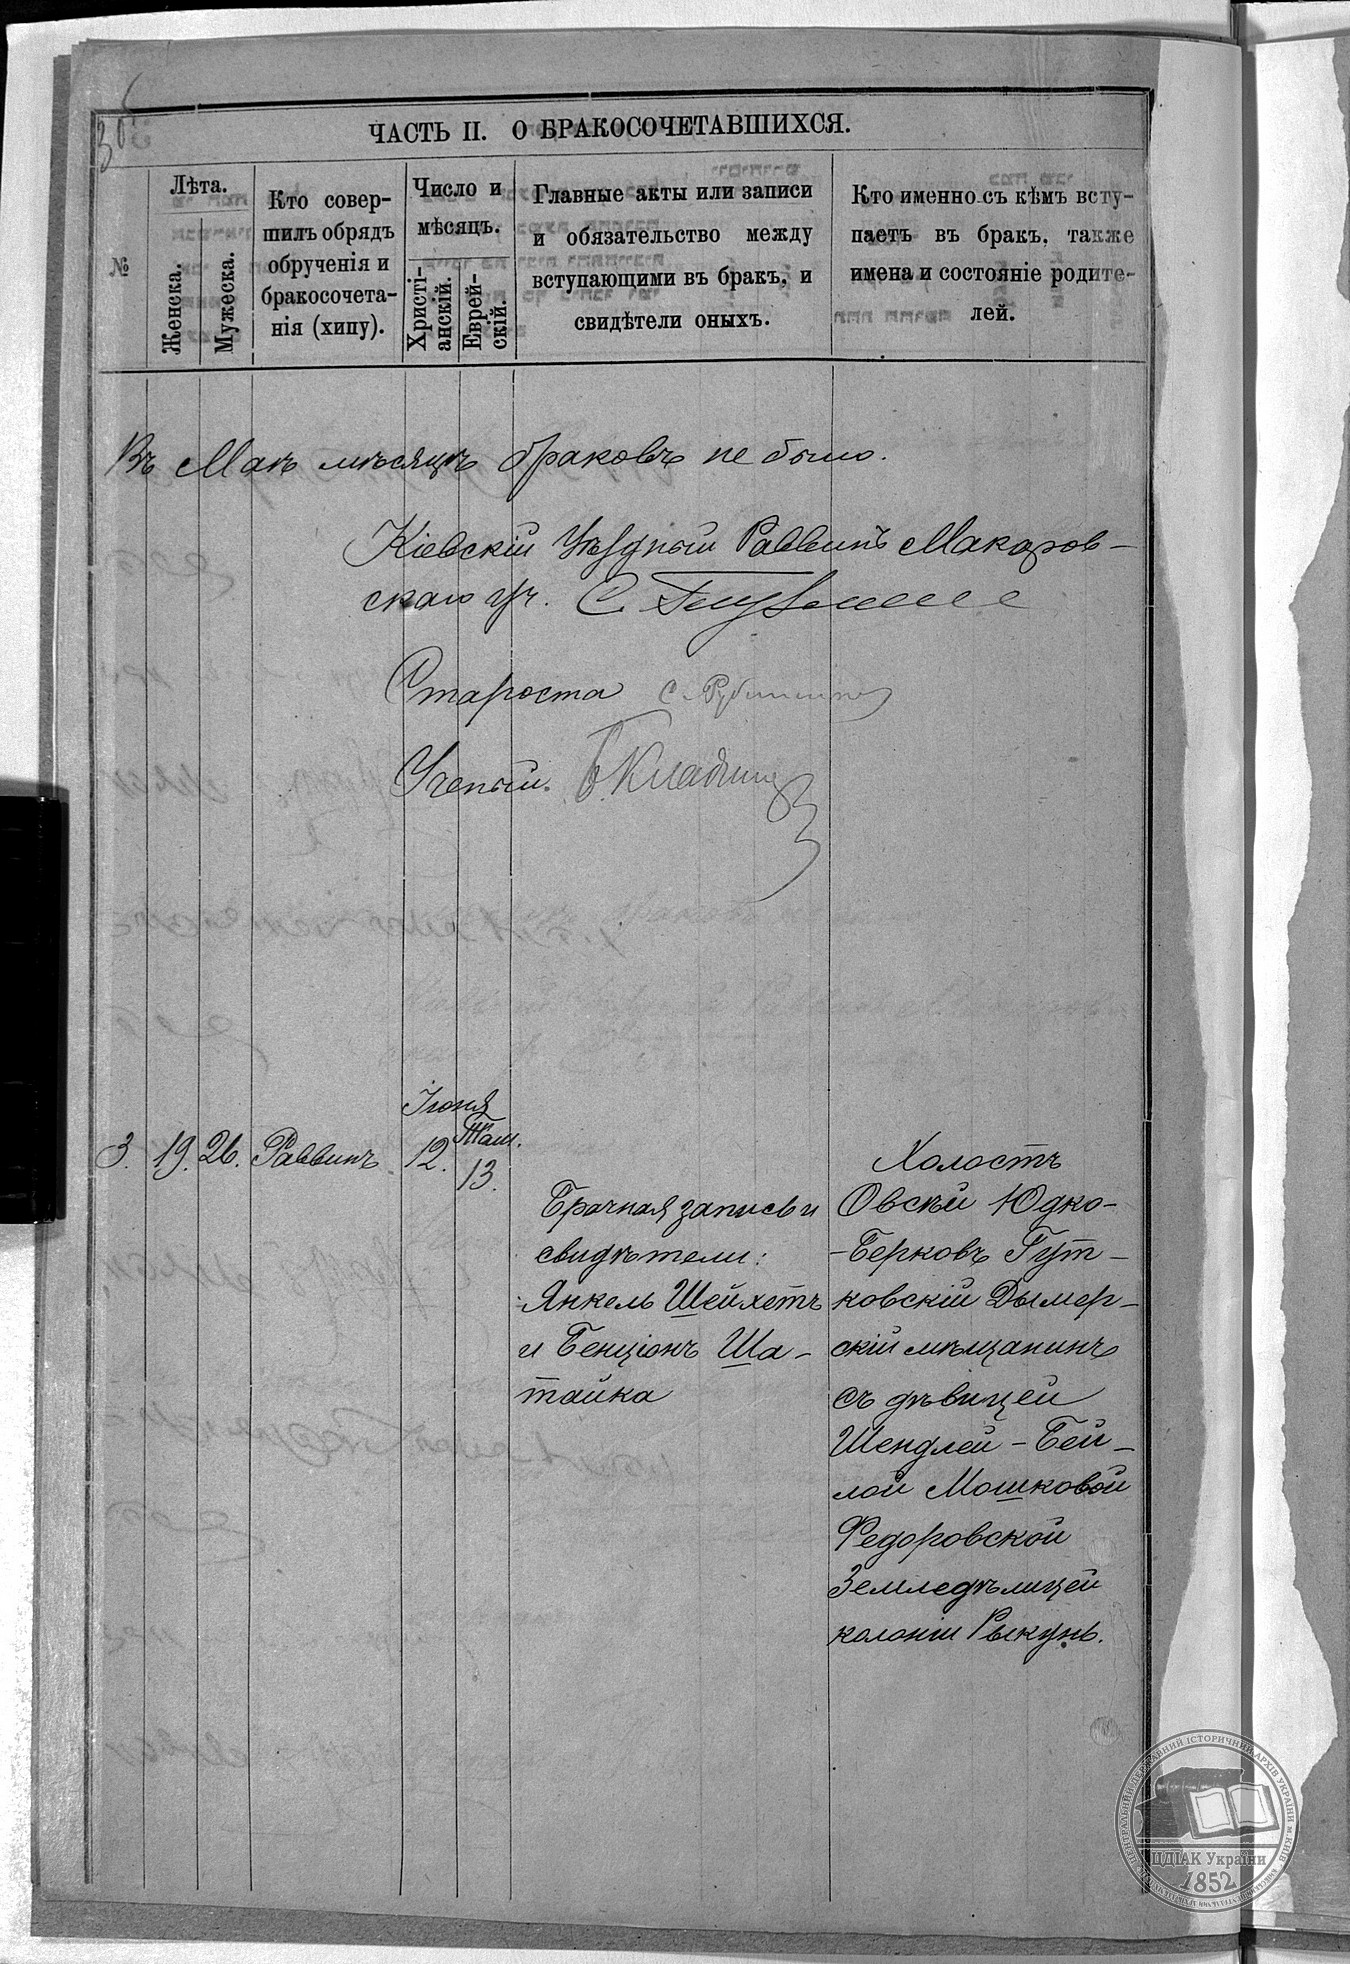 ЧАСТЬ II. О БРАКОСОЧЕТАВШИХСЯ.
№
Лѣта.
Женска.
Мужеска.
Кто совер-
шилъ обрядъ
обрученія и
бракосочета-
нія (хипу).
Число и
мѣсяцъ.
Христі-
анскій.
Еврей-
скій.
Главные акты или записи
и обязательство между
вступающими въ бракъ, и
свидѣтели оныхъ.
Кто именно съ кѣмъ всту-
паетъ въ бракъ, также
имена и состояніе родите-
лей.
Въ Маѣ мѣсяцѣ браковъ не было.
Кіевскій Уѣздный Раввинъ Макаров-
скаго уч. С.
Староста С.
Ученый. Б.
Іюня
3. 19. 26. Раввинъ 12. Там.
13.
Брачная запись и
свидѣтели:
Янкель Шейхетъ
и Бенціонъ Ша-
тайка
Холостъ
Овсѣй Юдко-
-Берковъ Гут-
ковскій Дымер-
скій мѣщанинъ
съ дѣвицей
Шендлей-Бей-
лой Мошковой
Федоровской
Земледѣлицей
колоніи Рыкунь.
ЦДІАК України
1852